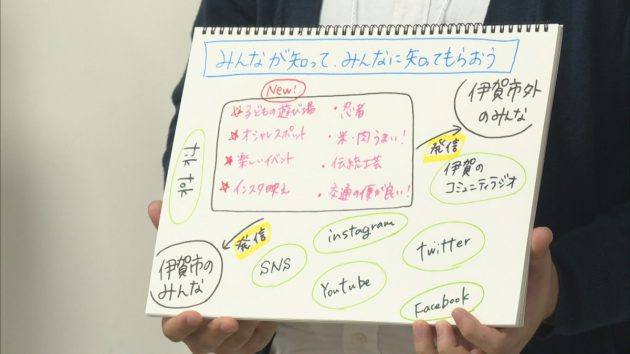 みんなが知って、みんなに知ってもらおう
New!
☆子どもの遊び場
・忍者
☆オシャレスポット
・米・肉うまい!
☆楽しいイベント
・伝統工芸
☆インスタ映え
・交通の便が良い!
伊賀市外
のみんな
発信
伊賀の
コミュニティラジオ
tik tok
発信
伊賀市の
みんな
SNS
instagram
Youtube
twitter
Facebook